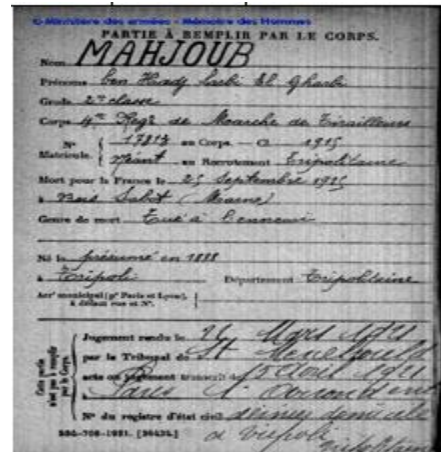 © Ministère des armées - Mémoire des Hommes
PARTIE À REMPLIR PAR LE CORPS.
Nom MAHJOUB
Prénoms ben Hadj Larbi El Gharbi
Grade 2e classe
Corps 4me Régt de Marche de Tirailleurs
N° 17813 au Corps. — Cl. 1915
Matricule. Néant au Recrutement Tripolitaine
Mort pour la France le 25 Septembre 1915
à Bois Sabot (Marne)
Genre de mort Tué à l'ennemi
Né le présumé en 1888
à Tripoli Département Tripolitaine
Arrt municipal (pr Paris et Lyon), à défaut rue et N°.
Cette partie n'est pas à remplir par le Corps.
Jugement rendu le Mars 1921
par le Tribunal de St Menehould
acte ou jugement transcrit le 15 Avril 1921
à Paris 1er arrondt
N° du registre d'état civil dernier domicile
à Tripoli
Tripolitaine